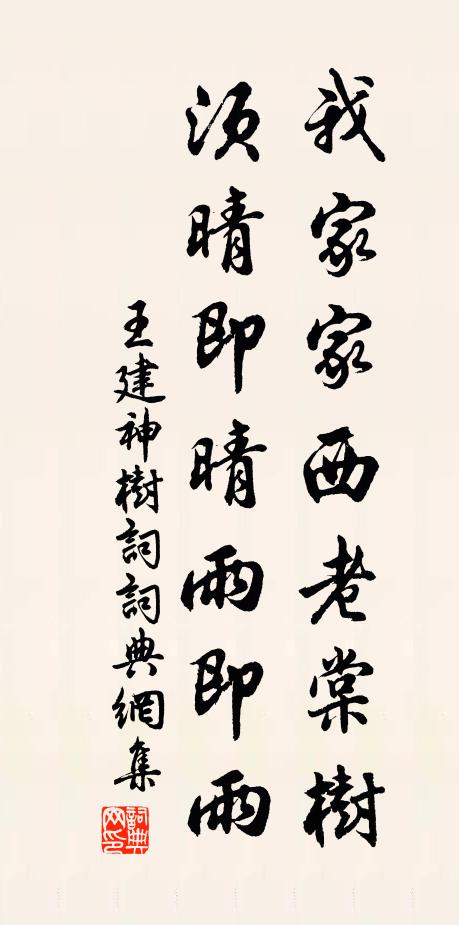 我家家西老棠樹
須晴即晴雨即雨
王建神樹詞詞典網集
詞典网印